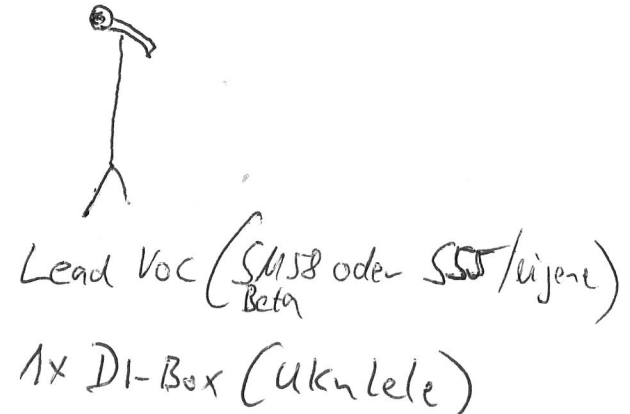 Lead Voc (SM58 oder S55/eigene)
Beta
1x DI-Box (Ukulele)